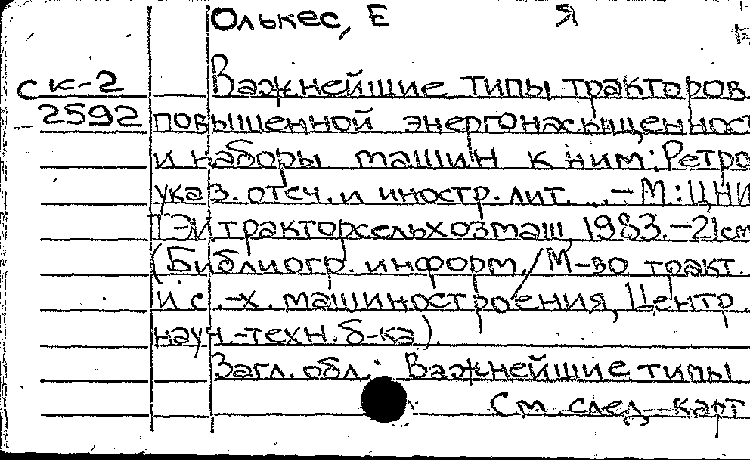 Олькес, Е
Я
ск-2
Важнейшие типы тракторов
2592
повышенной энергонасыщеннос
и наборы машин к ним: Ретро
указ. отеч. и иностр. лит. .- М: ЦНИ
ТЭИтракторсельхозмаш, 1983.-21см
(Библиогр. информ./М-во тракт.
и с.-х. машиностроения, Центр.
науч.-техн. б-ка).
Загл. обл.: Важнейшие типы
См. след карт